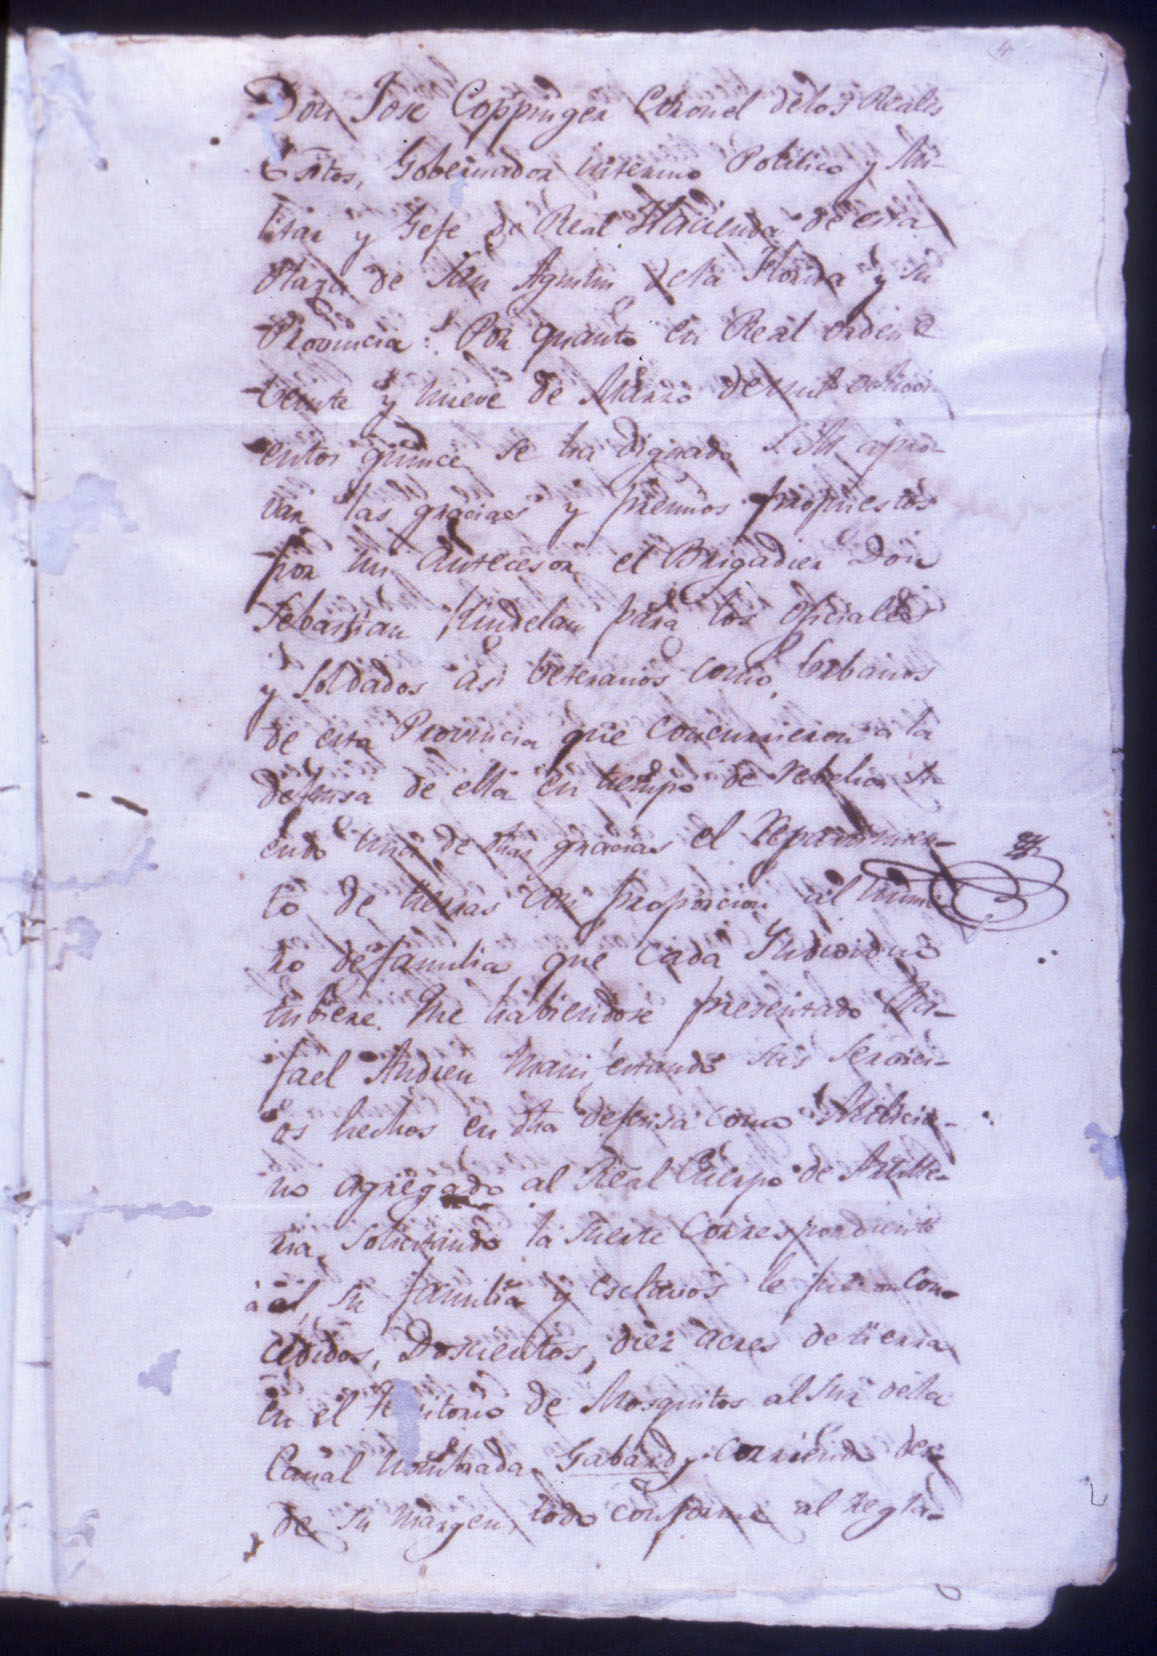 4
Don Jose Coppinger Coronel delos Reales
Exõtos, Gobernador interino Politico y Mi-
litar y Gefe de Real Hacienda de esta
Plaza de San Agustin dela Florida y su
Provincia: Por quanto en Real orden de
veinte y nueve de Marzo de mil ochoci-
entos quince se ha dignado S. M. apro-
var las gracias y premios propuestos
por mi Antecesor el Brigadier Don
Sebastian Kindelan para los oficiales
y Soldados asi veteranos como Urbanos
de esta Provincia que concurrieron a la
defensa de ella en tiempo de rebelion si-
endo una de dhas gracias el repartimien-
to de tierras con proporcion al nume-
ro de familia que cada Individuo
tubiere. Que habiendose presentado Ra-
fael Andreu manifestando sus servici-
os hechos en dha defensa como Milicia-
no agregado al Real Cuerpo de Artille-
ria, solicitando la suerte correspondiente
à él, su familia y esclavos le fueron con-
cedidos, Doscientos, diez acres de tierra
en el territorio de Mosquitos al Sur dela
Canal nombrada Gabard, corriendo des-
de su margen, todo conforme al regla-